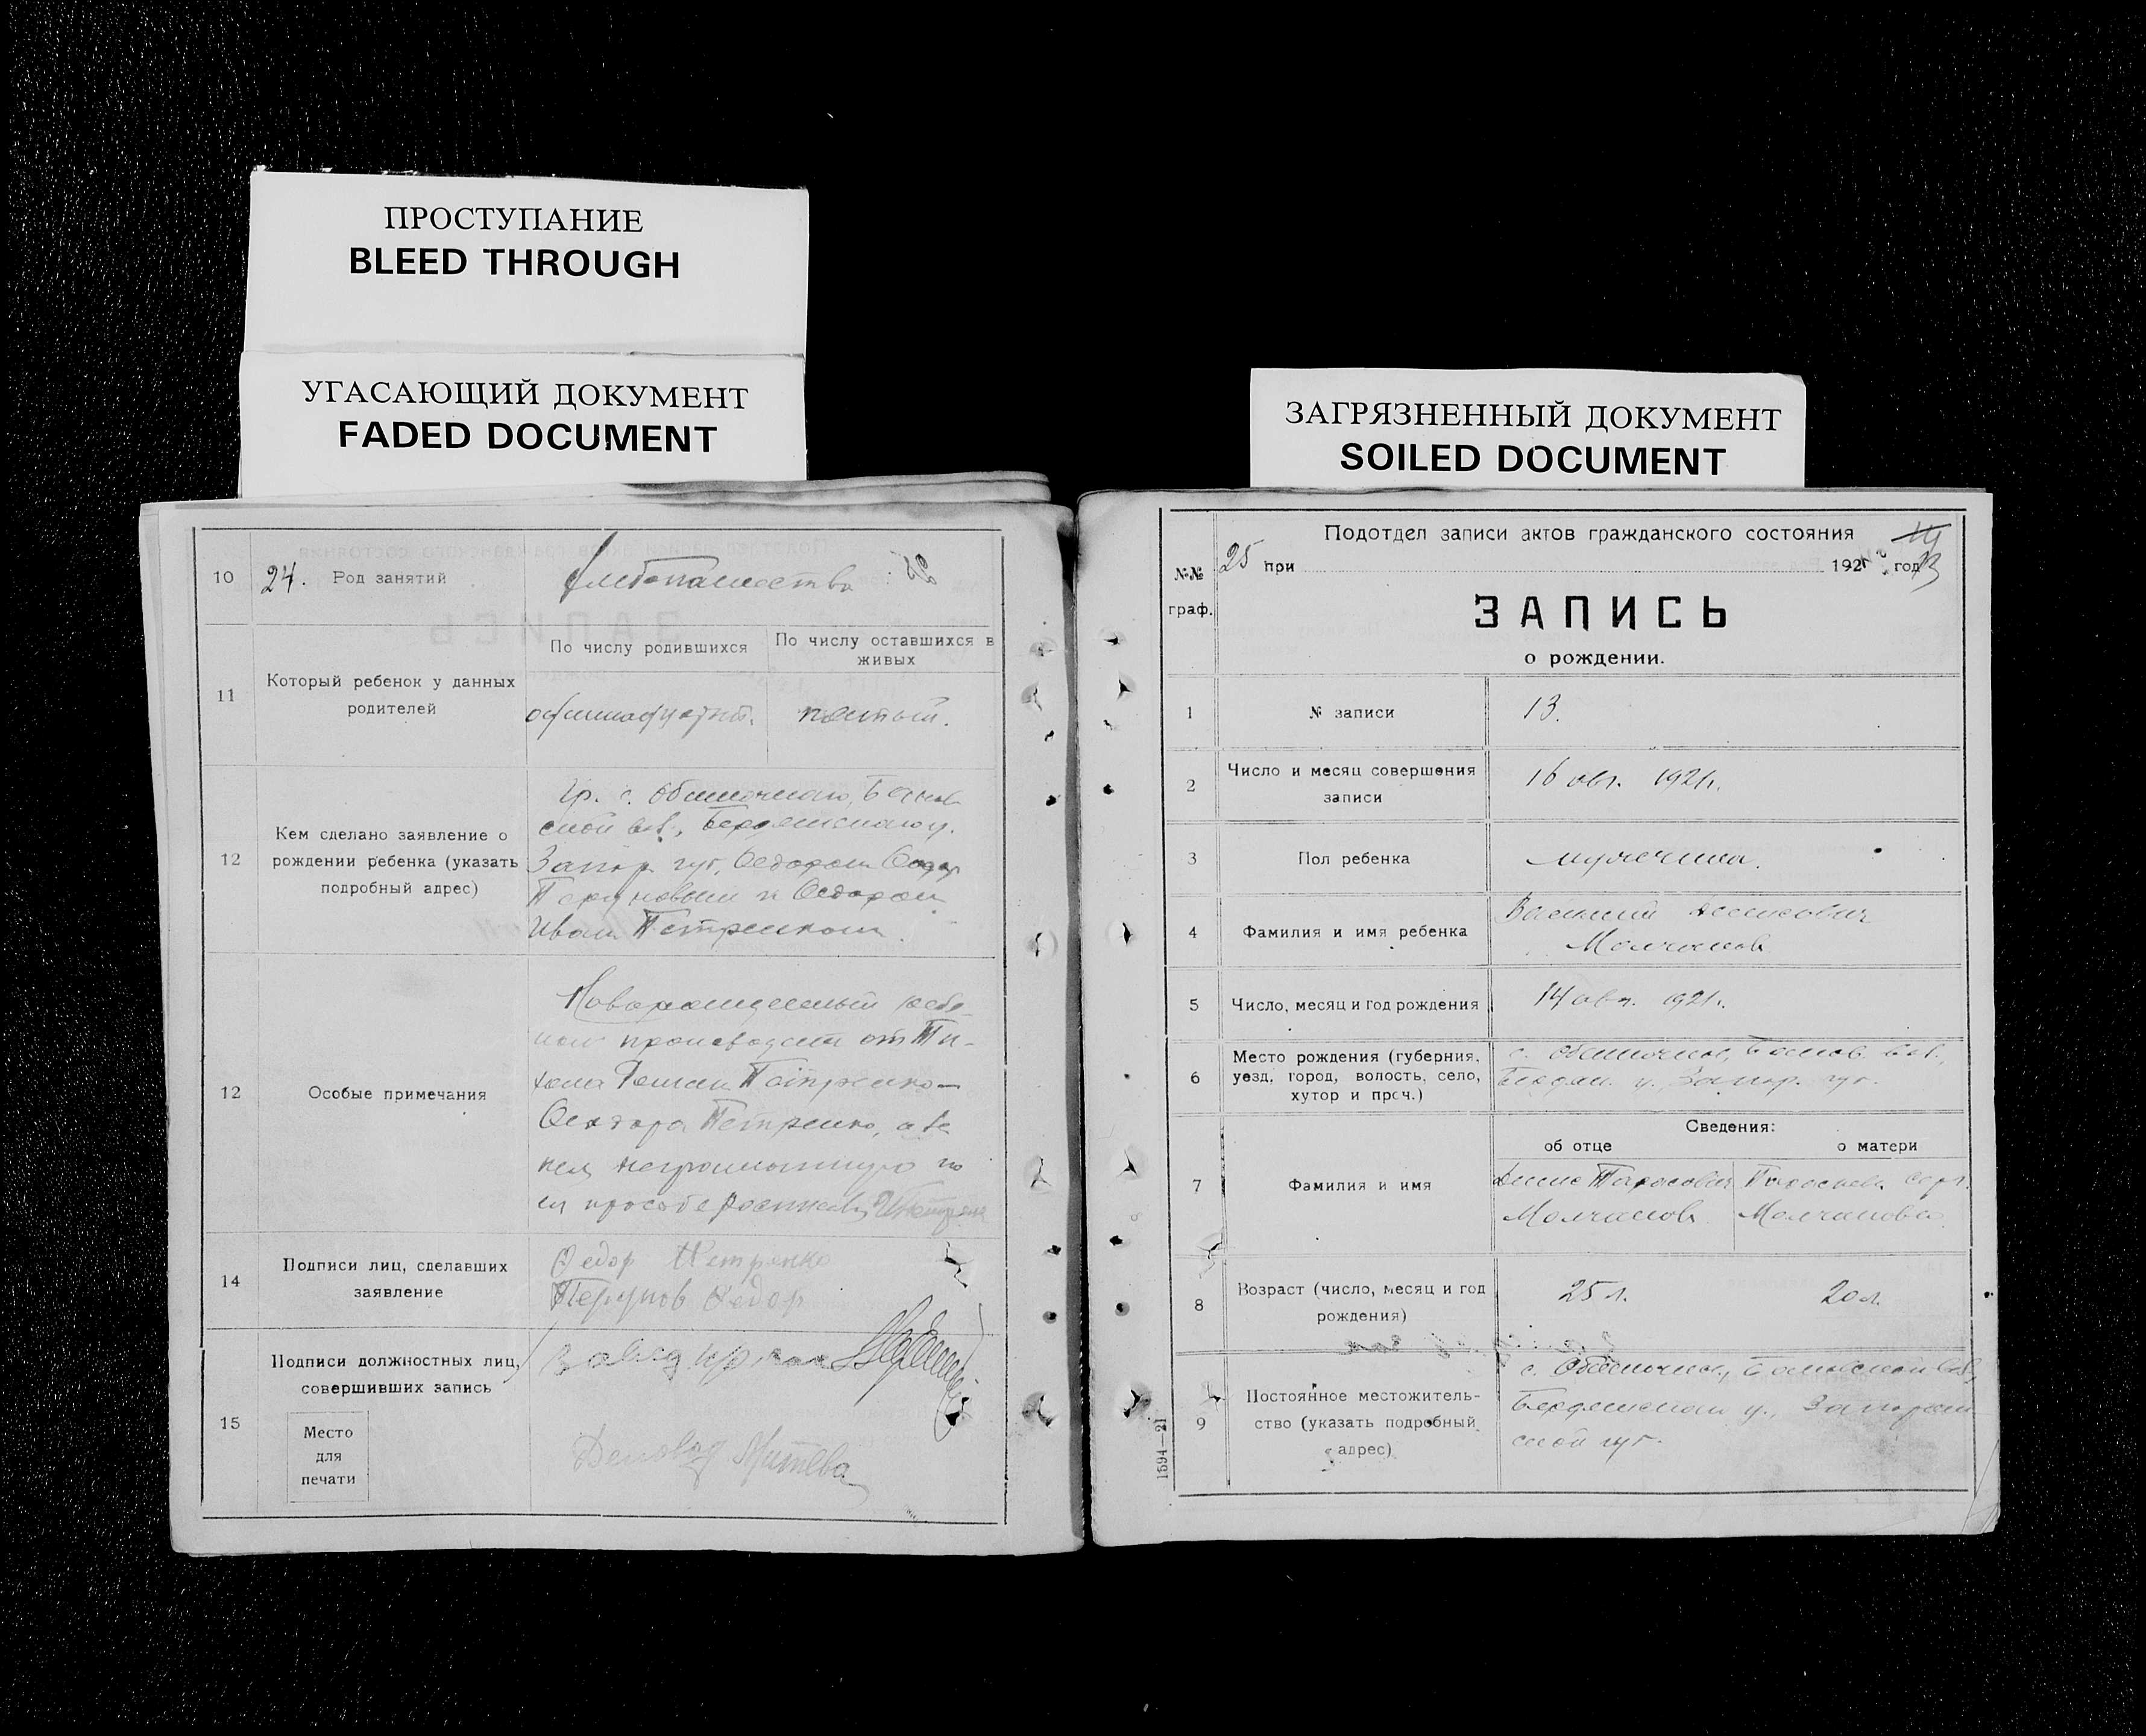 ПРОСТУПАНИЕ
BLEED THROUGH
УГАСАЮЩИЙ ДОКУМЕНТ
FADED DOCUMENT
10
24.
Род занятий
хлебопашество
11
Который ребенок у данных
родителей
По числу родившихся
По числу оставшихся в
живых
пятый.
12
Кем сделано заявление о
рождении ребенка (указать
подробный адрес)
Гр. с. Обиточного,
ской вол., Бердянского у.
Запор. губ. Федором
Перуновым и Федором
Иван Петренком.
12
Особые примечания
Новорожденный ребе
нок от Ти-
Петренко
Федора Петренко, а за
нея неграмотную по
ея просьбе
14
Подписи лиц, сделавших
заявление
Федор Петренко
Перунов Федор
15
Подписи должностных лиц,
совершивших запись
Место
для
печати
Деловод
ЗАГРЯЗНЕННЫЙ ДОКУМЕНТ
SOILED DOCUMENT
Подотдел записи актов гражданского состояния
№№
граф.
25 при 192 год
13
ЗАПИСЬ
о рождении.
1
№ записи
13.
2
Число и месяц совершения
записи
16 авг. 1921г.
3
Пол ребенка
мужчина.
4
Фамилия и имя ребенка
Василий Денисович
Молчанов
5
Число, месяц и год рождения
14 авг. 1921г.
6
Место рождения (губерния,
уезд, город, волость, село,
хутор и проч.)
с. Обиточное, вол.,
Бердян. у. Запор. губ.
Сведения:
об отце
о матери
7
Фамилия и имя
Денис Тарасович
Молчанов
Молчанова
8
Возраст (число, месяц и год
рождения)
25 л.
20 л.
9
Постоянное местожитель-
ство (указать подробный
адрес)
с. Обиточное, вол,
Бердянского у., Запорож
ской губ.
1594—21